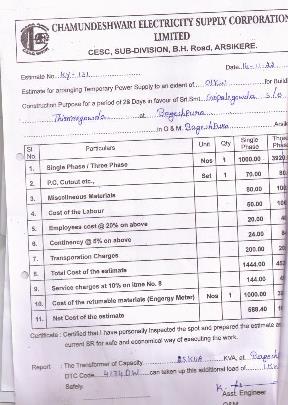 CHAMUNDESHWARI ELECTRICITY SUPPLY CORPORATION
LIMITED
CESC, SUB-DIVISION, B.H. Road, ARSIKERE.
Estimate No. KY-131 Date. 16-11-22
Estimate for arranging Temporary Power Supply to an extent of for Build
Construction Purpose for a period of 28 Days in favour of Sri.Smt. Gopalegowda S/o
Thimmegowda at Bageshpura
in O & M. Bageshpura Arsik
Sl No Particulars Unit Qty Single Phase Three Phase
1. Single Phase / Three Phase Nos 1 1000.00 3920
2. P.C. Cutout etc., Set 1 70.00 80
3. Miscellneous Materials 80.00 100
4. Cost of the Labour 50.00 100
5. Employees cost @ 20% on above 20.00 40
6. Continency @ 5% on above 24.00
7. Transporation Charges 200.00 20
8. Total Cost of the estimate 1444.00
9. Service charges at 10% on itme No. 8 144.00
10. Cost of the retumable materials (Engergy Meter) Nos 1 1000.00
11. Net Cost of the estimate 588.40
Certificate : Certified that I have personally inspected the spot and prepared the estimate as
current SR for safe and economical way of executing the work.
Report : The Transformer of Capacity 25KVA KVA, at Bagesh
DTC Code. can taken up this additional load of
Safely.
Asst. Engineer
O&M